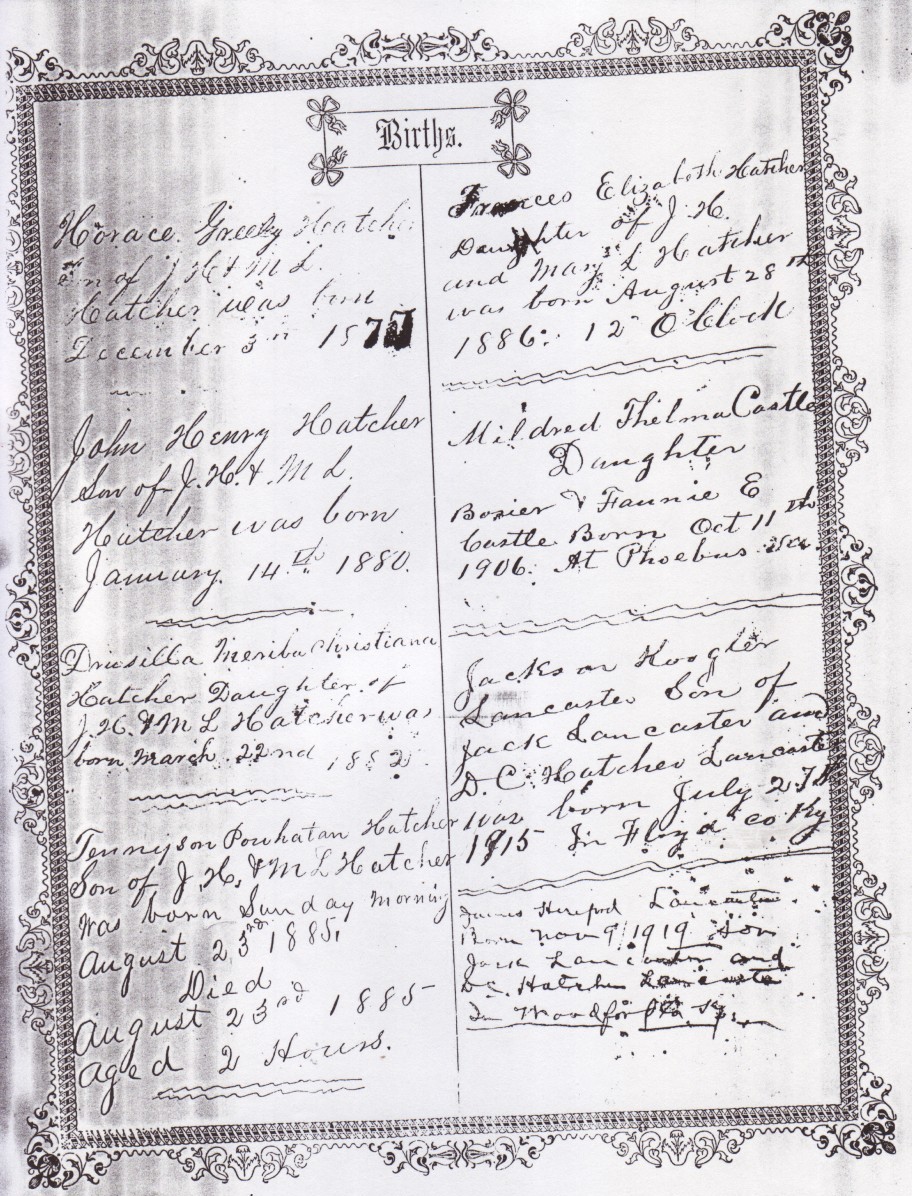 Births.
Horace Greely Hatcher
Son of J. H. & M L.
Hatcher was born
December 3rd 1877
John Henry Hatcher
Son of J. H. & M L.
Hatcher was born
January. 14th 1880.
Drusilla Meriba Christiana
Hatcher Daughter of
J. H. & M L Hatcher was
born March. 22nd 1882.
Tennyson Powhatan Hatcher
Son of J. H. & M L Hatcher
Was born Sunday Morning
August 23rd 1885.
Died
August 23rd 1885
Aged 2 Hours.
Frances Elizabeth Hatcher
Daughter of J. H.
and Mary L Hatcher
was born August 28th
1886. 12 O'Clock
Mildred Thelma Castle
Daughter
Bozier & Fannie E
Castle Born Oct 11th
1906. At Phoebus
Jackson Koogler
Lancaster Son of
Jack Lancaster and
D. C. Hatcher Lancaster
was born July 27th
1915 In Floyd co Ky
James Hereford Lancaster
Born Nov 9 1919 Son
Jack Lancaster and
DC. Hatcher Lancaster
In Woodford Ky.